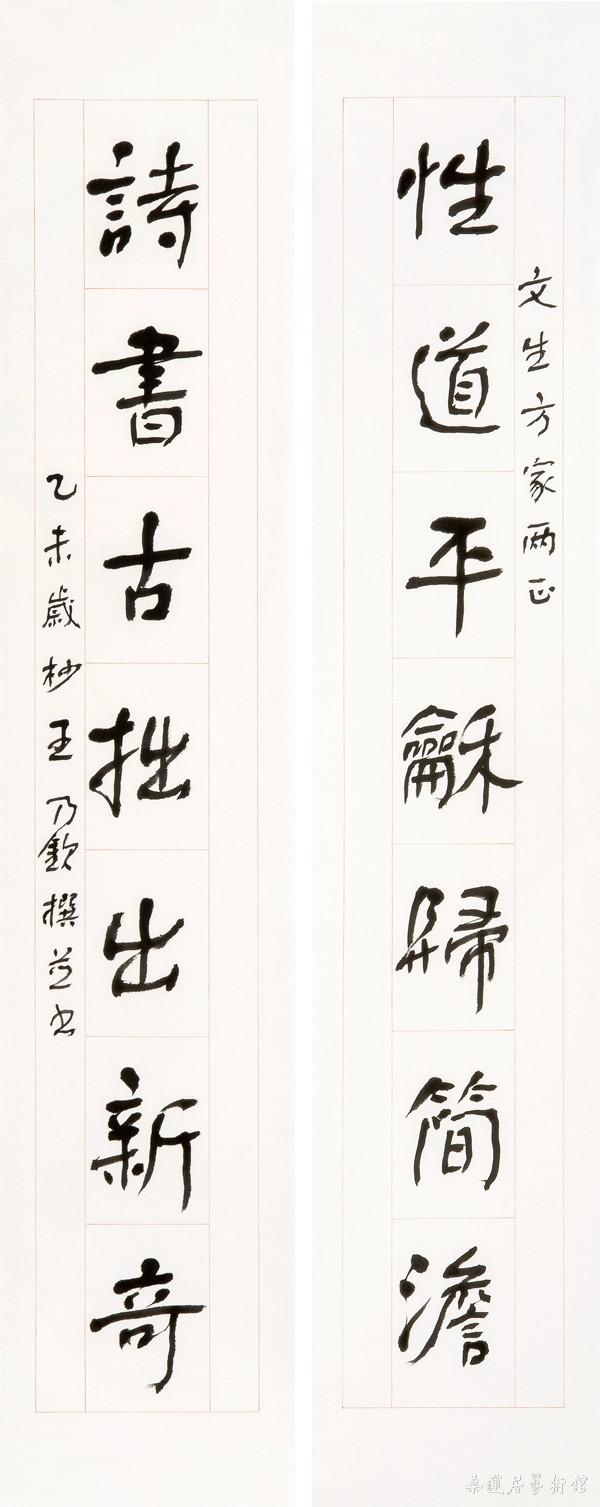 文生方家两正
性道平龢歸簡澹
詩書古拙出新奇
乙未歲杪王乃欽撰並书
桑蓮居藝術館